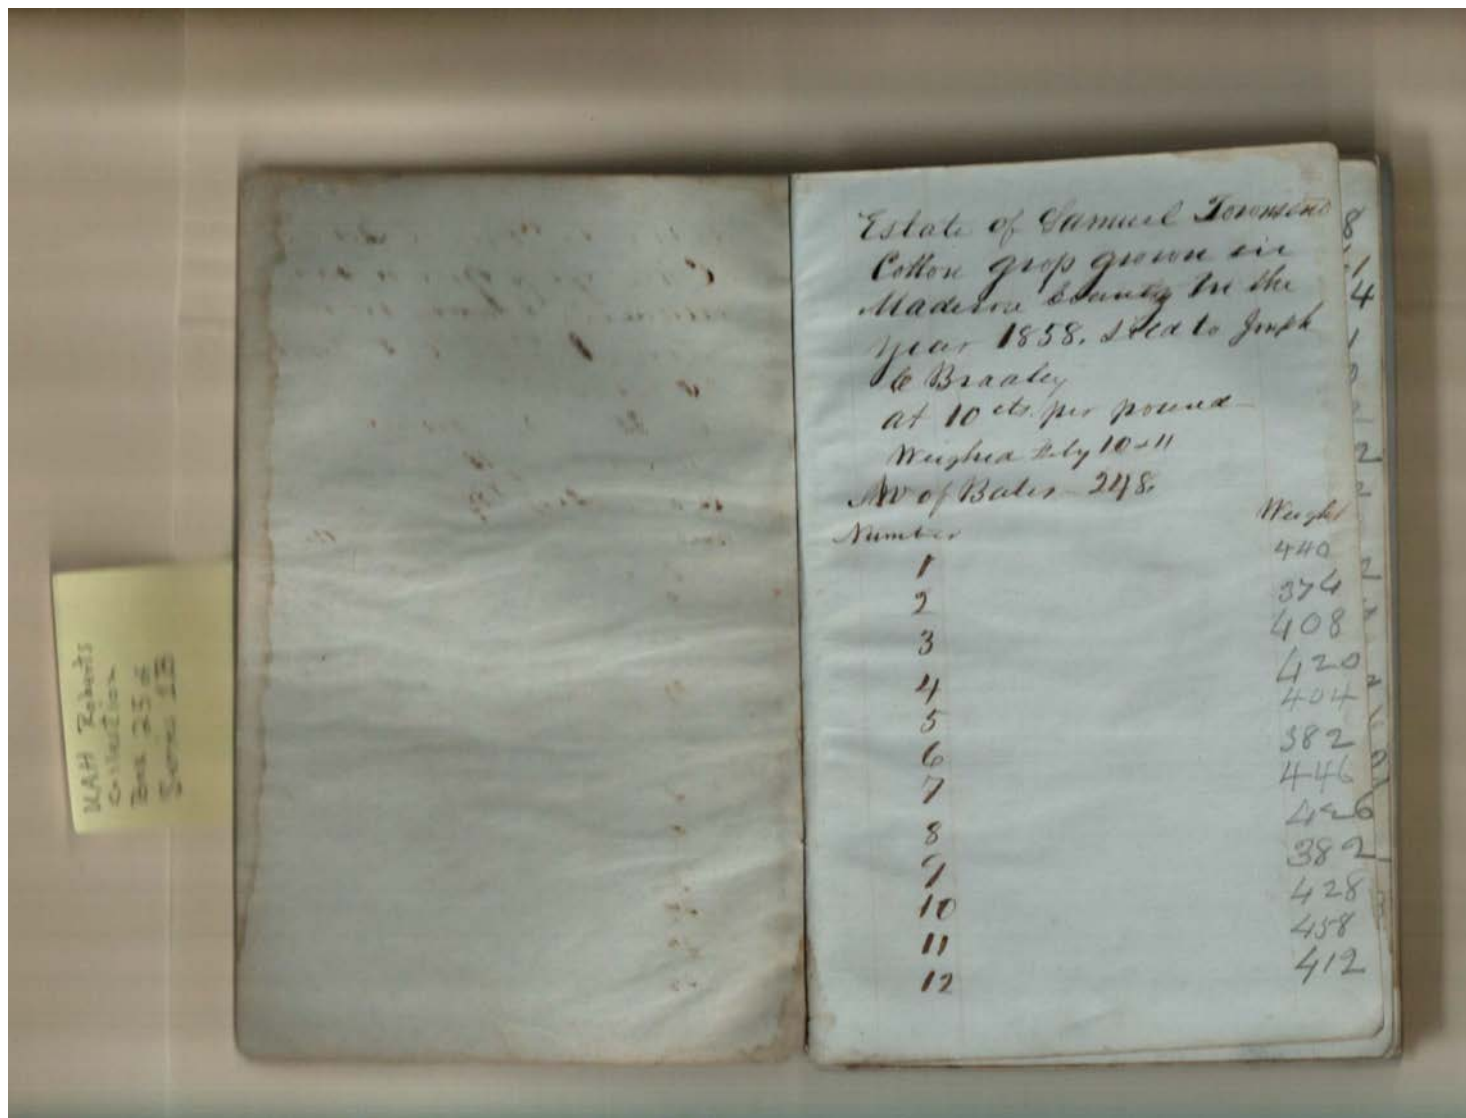 UAH Roberts
Collection
Box 252
Series IB
Estate of Samuel Townsend
Cotton grop grown in
Madison County In the
year 1858. Sold to Joseph
C Bradley
at 10 cts. per pound
Weighed Feby 10 & 11
No of Bales 248.
Number Weight
1 440
2 374
3 408
4 420
5 404
6 382
7 446
8 426
9 382
10 428
11 458
12 412